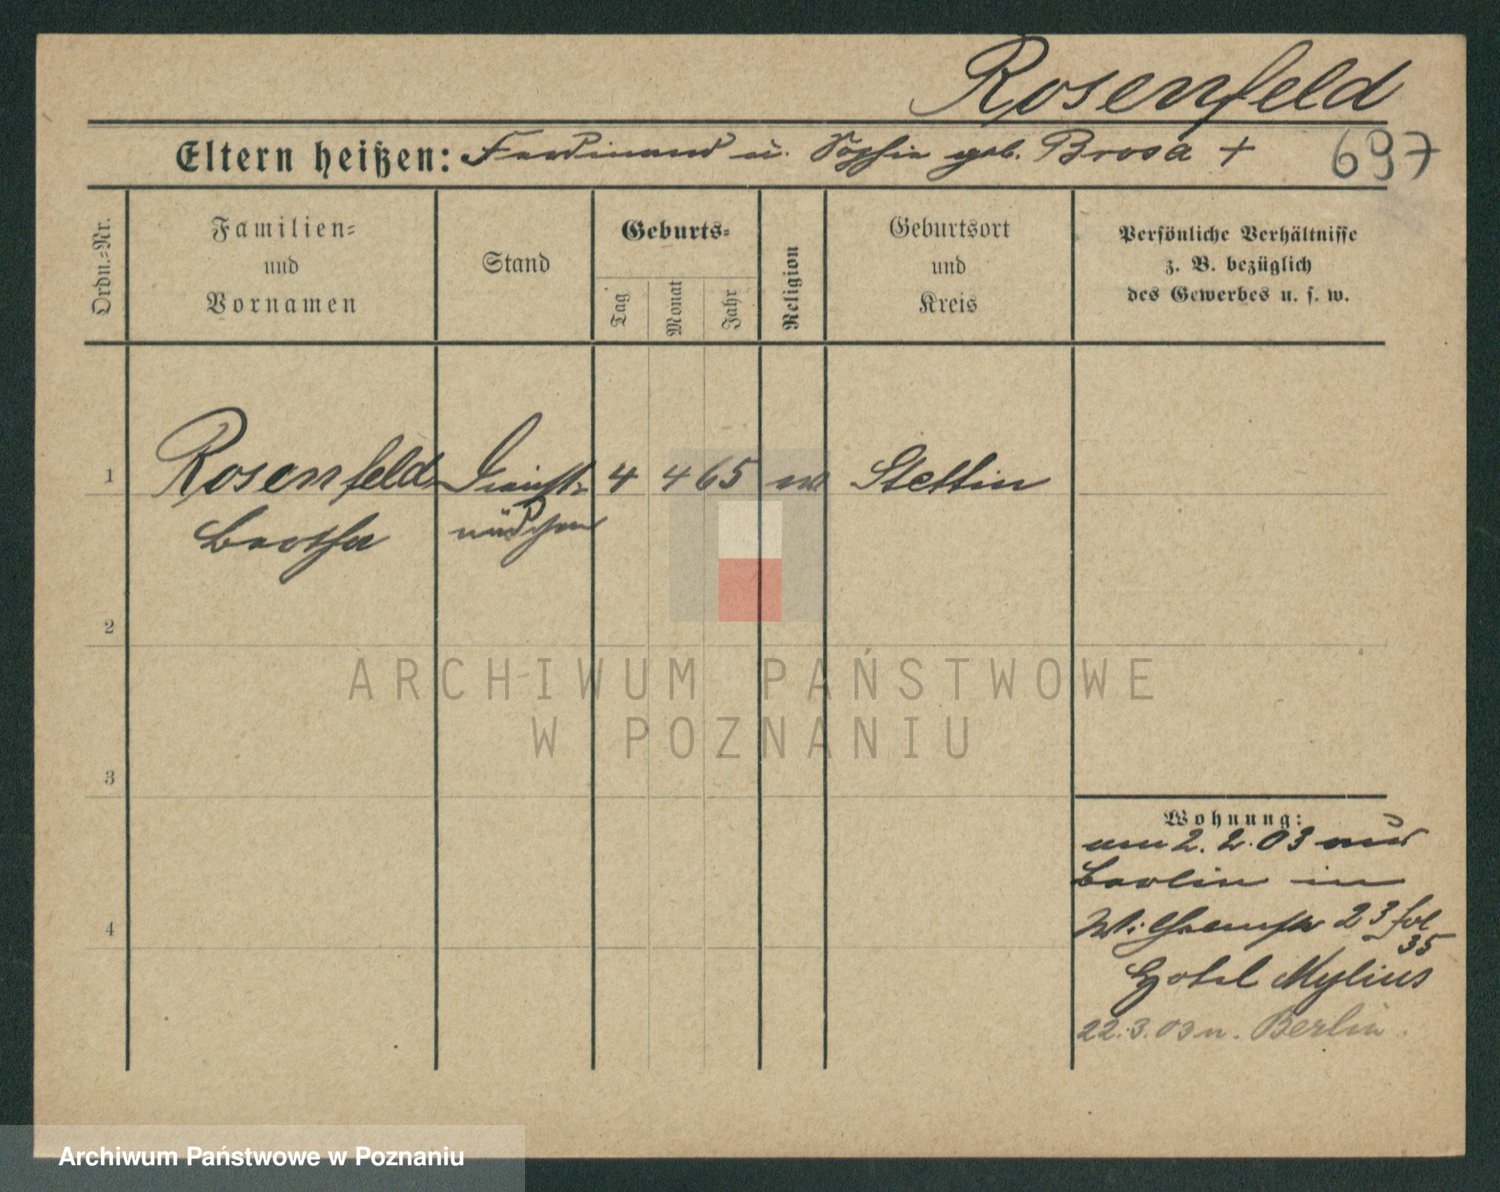 Rosenfeld
Eltern heißen: Ferdinand u. Sophie geb. Brosa +
697
Ordn.-Nr.
Familien-
und
Vornamen
Stand
Geburts-
Tag
Monat
Jahr
Religion
Geburtsort
und
Kreis
Persönliche Verhältnisse
z. B. bezüglich
des Gewerbes u. s. w.
1
Rosenfeld
Bertha
Dienst-
mädchen
4
4
65
Stettin
2
3
4
Wohnung:
am 2. 2. 03 aus
Berlin in
Wilhelmstr 23
35
Hotel Mylius
22.3.03 n. Berlin
ARCHIWUM PAŃSTWOWE
W POZNANIU
Archiwum Państwowe w Poznaniu